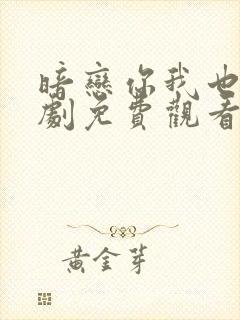 暗戀你我也
劇免費觀看
黃金芽